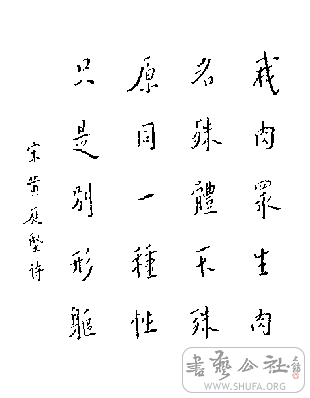 我肉眾生肉
名殊體不殊
原同一種性
只是別形軀
宋黃庭堅詩
書藝公社
WWW.SHUFA.ORG